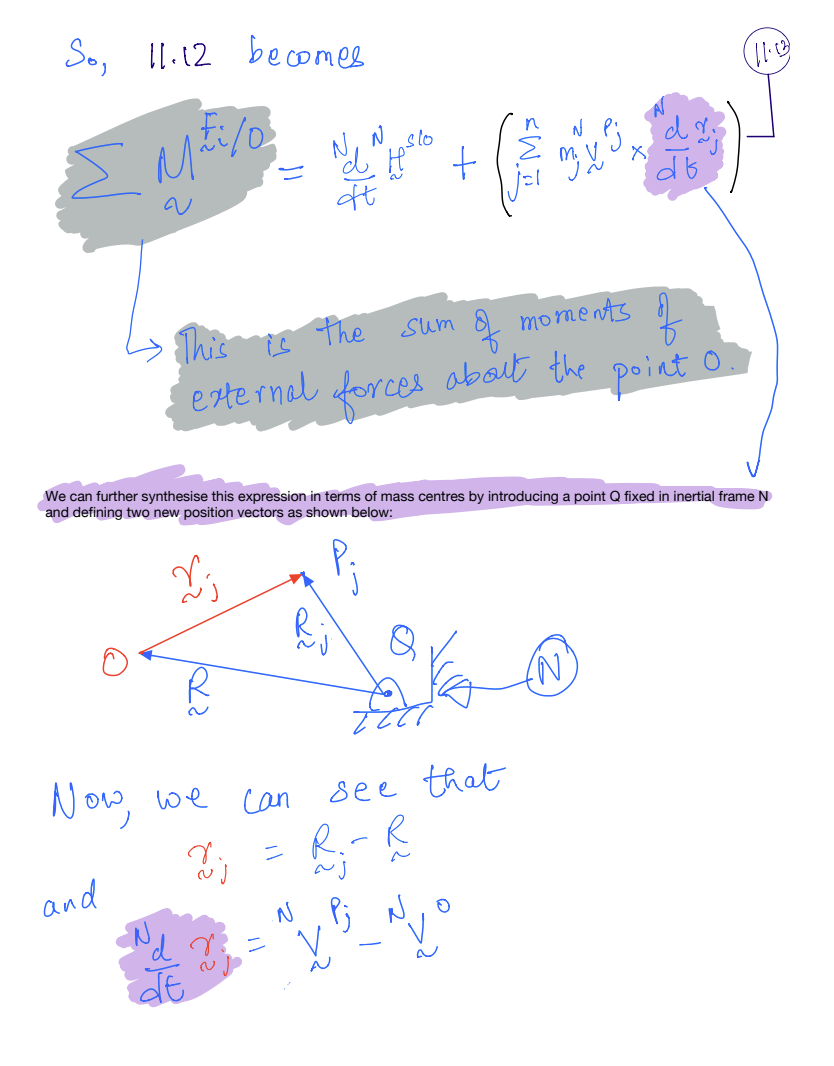 So, 11.12 becomes
11.12
∑ M^{F_i/O} = ^N d/dt ^N H^{S/O} + ( ∑_{j=1}^{n} m_j ^N V^{P_j} × ^N d/dt r_j )
This is the sum of moments of
external forces about the point O.
We can further synthesise this expression in terms of mass centres by introducing a point Q fixed in inertial frame N
and defining two new position vectors as shown below:
r_j
P_j
R_j
Q
N
O
R
Now, we can see that
r_j = R_j - R
and
^N d/dt r_j = ^N V^{P_j} - ^N V^O